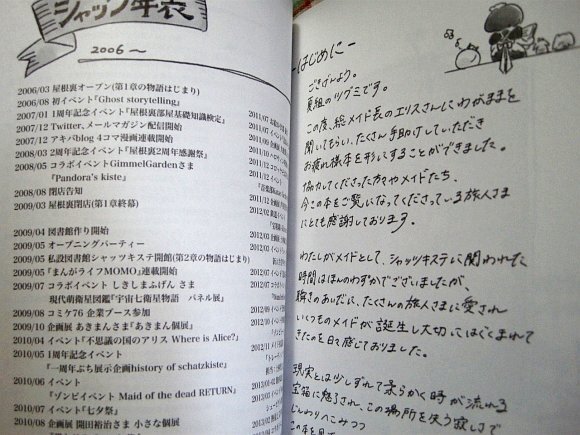 シャッツ年表
2006〜
2006/03 屋根裏オープン(第1章の物語はじまり)
2006/08 初イベント『Ghost storytelling』
2007/01 1周年記念イベント『屋根裏部屋基礎知識検定』
2007/12 Twitter、メールマガジン配信開始
2007/12 アキバblog 4コマ漫画連載開始
2008/03 2周年記念イベント『屋根裏2周年感謝祭』
2008/05 コラボイベントGimmelGardenさま
『Pandora's kiste』
2008/08 閉店告知
2009/03 屋根裏閉店(第1章終幕)
2009/04 図書館作り開始
2009/05 オープニングパーティー
2009/05 私設図書館シャッツキステ開館(第2章の物語はじまり)
2009/05 『まんがライフMOMO』連載開始
2009/07 コラボイベント しきしまふげん さま
現代萌衛星図鑑『宇宙七衛星物語 パネル展』
2009/08 コミケ76 企業ブース参加
2009/10 企画展 あきまんさま『あきまん個展』
2010/04 イベント『不思議の国のアリス Where is Alice?』
2010/05 1周年記念イベント
『一周年ぷち展示企画history of schatzkiste』
2010/06 イベント
『ゾンビイベント Maid of the dead RETURN』
2010/07 イベント『七夕祭』
2010/08 企画展 開田裕治さま 小さな個展
2011/07
2011/08
2011/09
2011/12
2012/01
2012/02
2012/05
2012/07
2012/09
2012/10
2012/11
2012/12
2013/01
2013/02
-はじめに-
ごきげんよう。
夏組のツグミです。
この度、総メイド長のエリスさんにわがままを
聞いてもらい、たくさん手助けしていただき
お疲れ様本を形にすることができました。
協力してくださった方々やメイドたち、
今この本をご覧になってくださっている旅人さま
にとても感謝しております。
わたしがメイドとして、シャッツキステに関われた
時間はほんのわずかでございましたが、
瞬きのあいだに、たくさんの旅人さまに愛され
いくつものメイドが誕生し大切にはぐくまれて
きたのを日々感じておりました。
現実とは少しずれて柔らかく時が流れる
宝箱に魅了され、この場所を失う寂しさで
じんわりへこみつつ
この本を見て